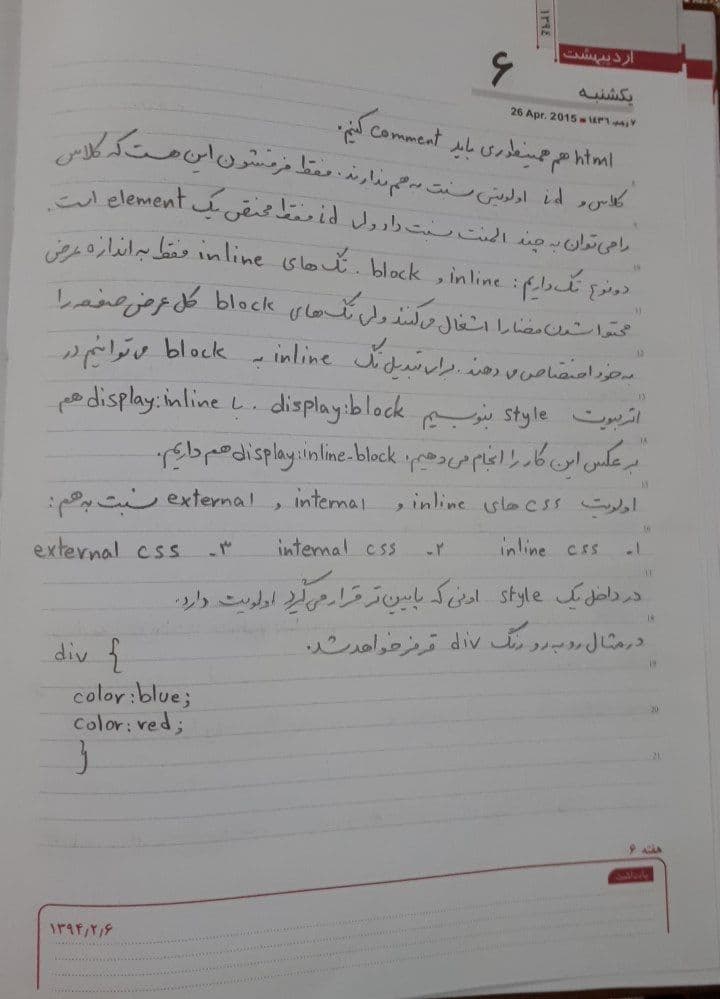 ۱۳۹۴
اردیبهشت
۶
یکشنبه
26 Apr. 2015 ■ ۷ رجب ۱۴۳۶
html هم همینطوری باید comment کنیم.
کلاس و id اولویتی نسبت به هم ندارند. فقط فرقشون این هست که کلاس
را می‌توان به چند المنت نسبت داد ولی id فقط مختص یک element است.
دو نوع تگ داریم: inline و block. تگ‌های inline فقط به اندازه عرض
محتواشون فضا را اشغال می‌کنند ولی تگ‌های block کل عرض صفحه را
به خود اختصاص می‌دهند. برای تبدیل تگ inline به block می‌توانیم در
اتریبیوت style بنویسیم display:block. با display:inline هم
برعکس این کار را انجام می‌دهیم. display:inline-block هم داریم.
اولویت css های inline و internal و external نسبت به هم:
۱- inline css ۲- internal css ۳- external css
در داخل یک style اونی که پایین‌تر قرار می‌گیرد اولویت دارد.
در مثال روبه‌رو رنگ div قرمز خواهد شد.
div {
color:blue;
color:red;
}
هفته ۶
یادداشت
۱۳۹۴/۲/۶